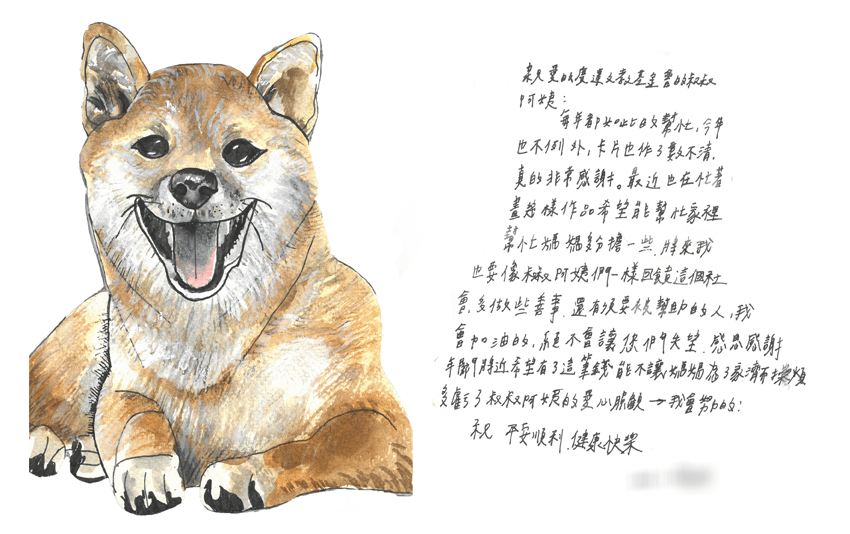 親愛的廣達文教基金會的叔叔
阿姨：
每年都如此的幫忙，今年
也不例外，卡片也作了數不清，
真的非常感謝。最近也在忙著
畫幾樣作品希望能幫忙家裡
幫忙媽媽多分擔一些，將來我
也要像叔叔阿姨們一樣回饋這個社
會，多做些善事，還有須要被幫助的人，我
會加油的，絕不會讓您們失望，感恩感謝
年關將近希望有了這筆錢能不讓媽媽為了家濟而操煩
多虧了叔叔阿姨的愛心脤 我會努力的：
祝 平安順利，健康快樂